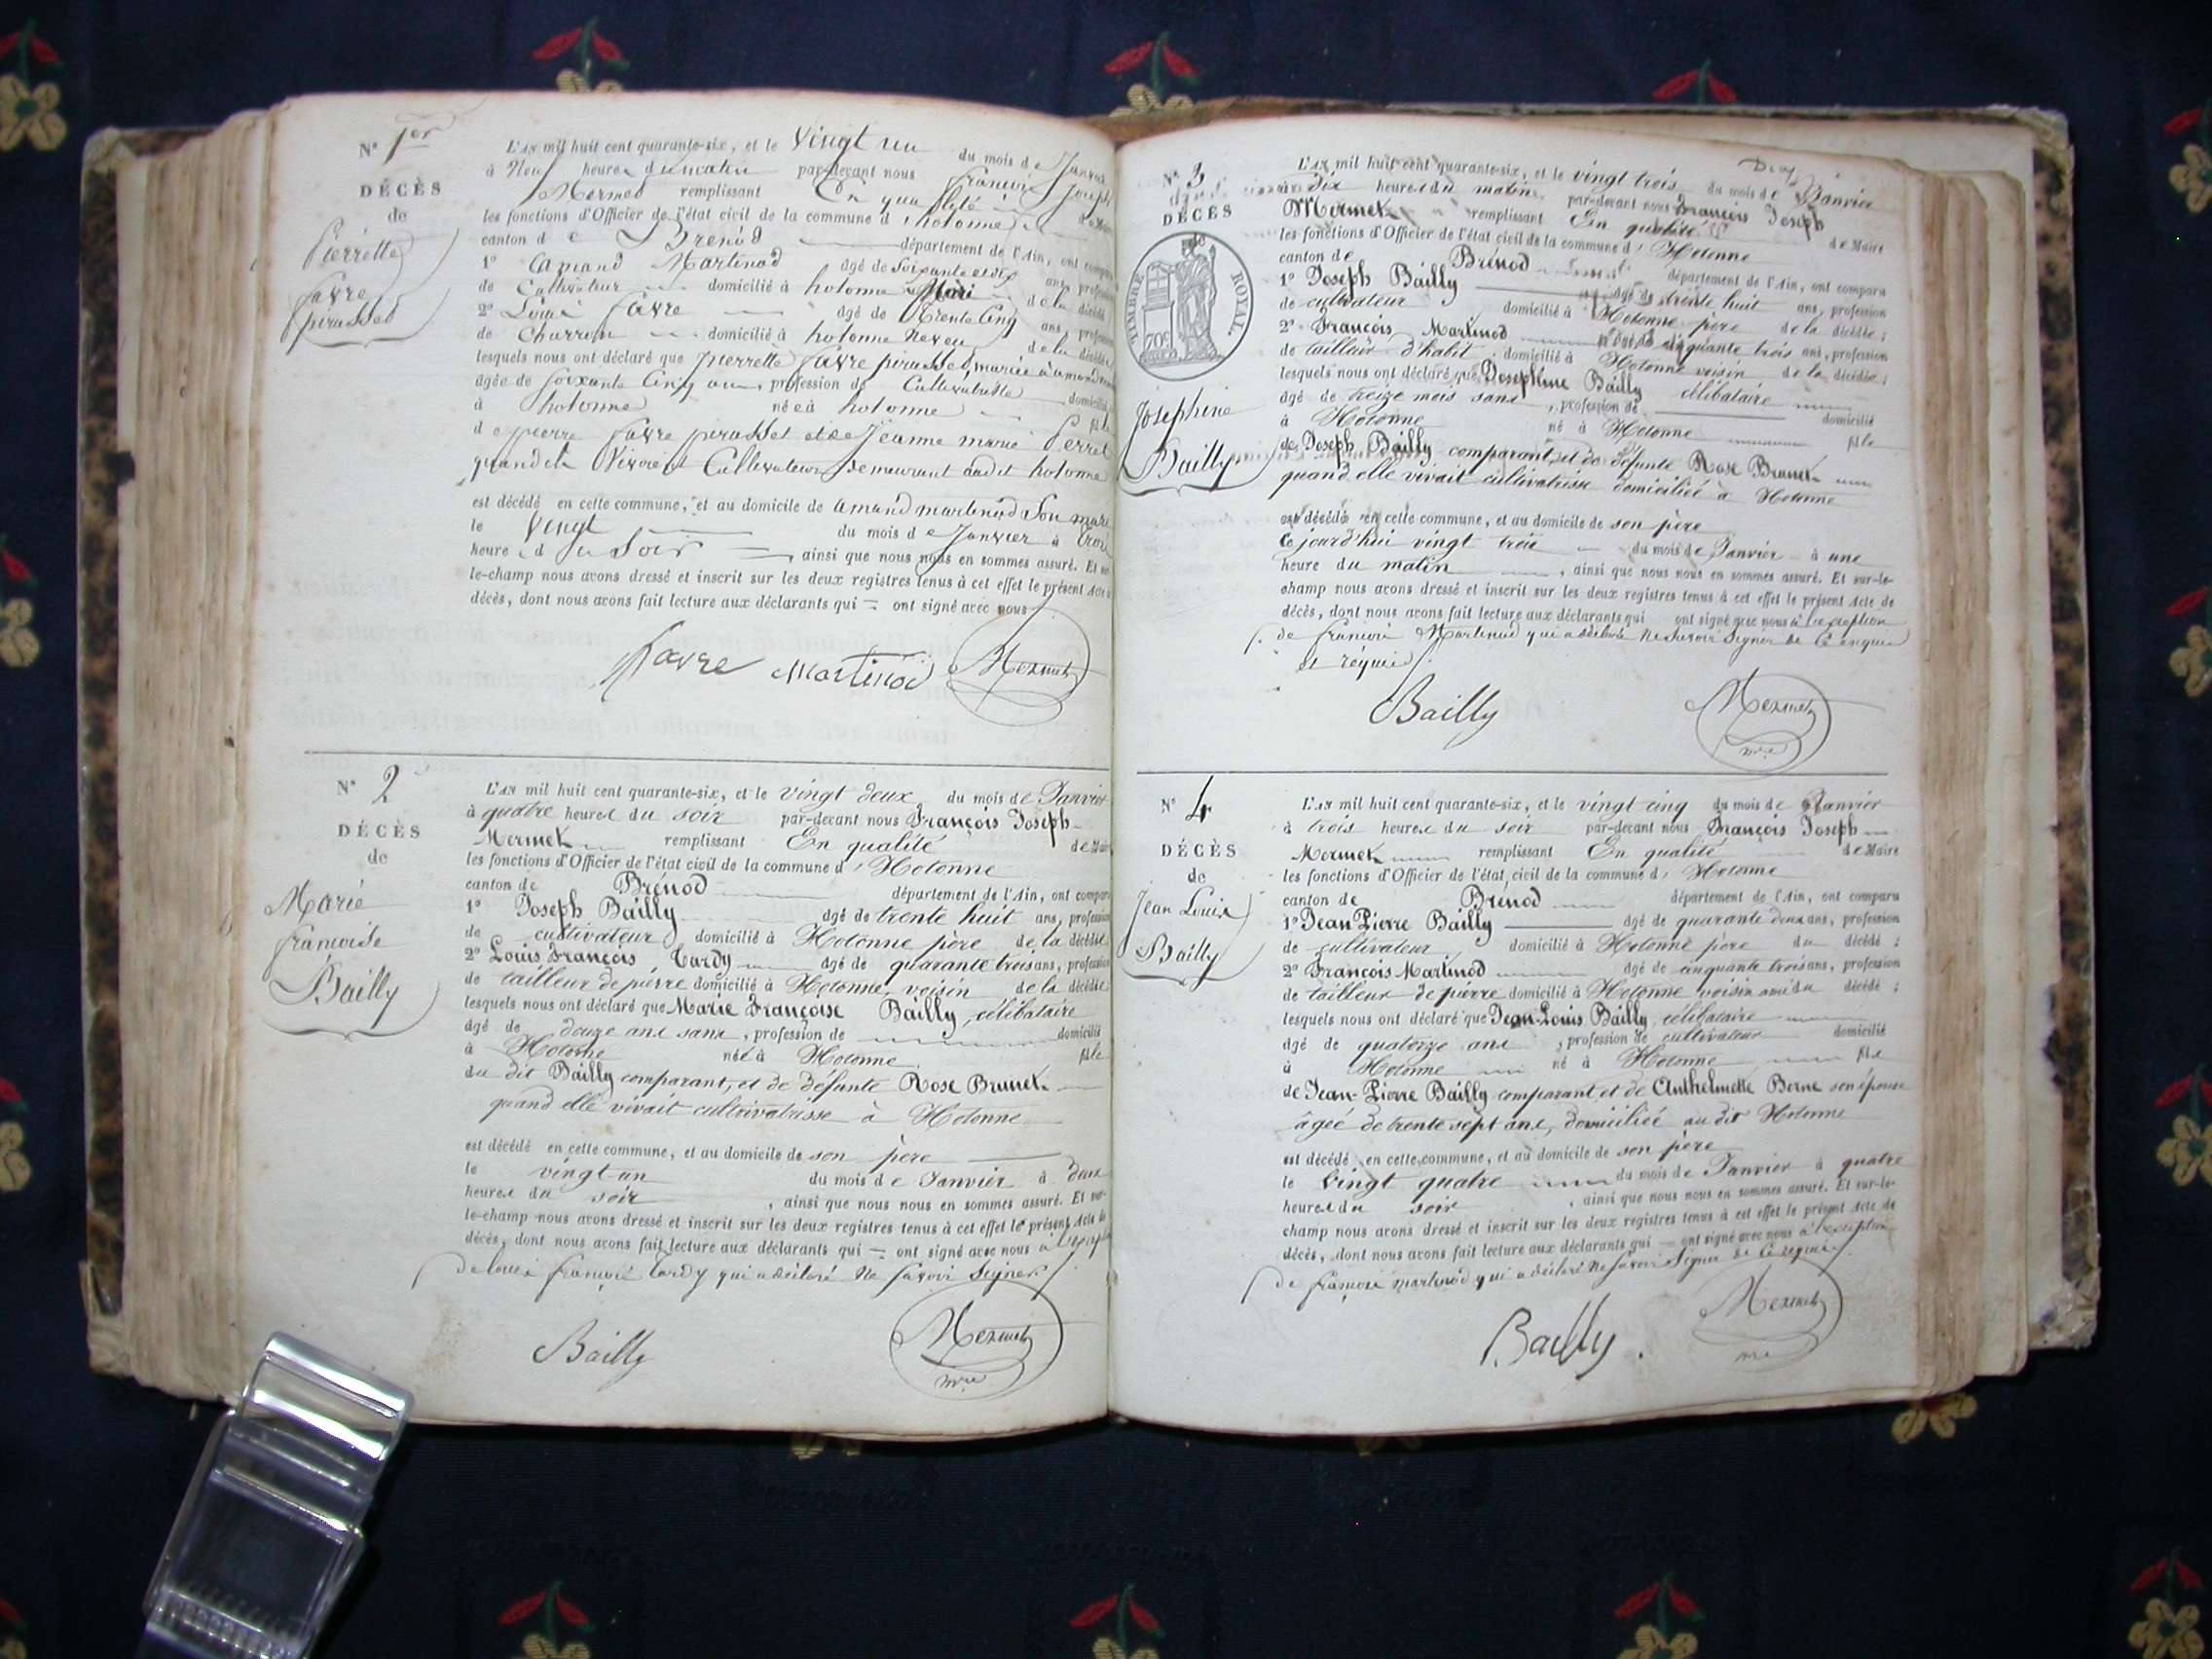 N° 1er
DÉCÈS
de
Pierrette
favre
pirasset
L'AN mil huit cent quarante-six, et le Vingt un du mois de Janvier
à Neuf heures du matin par-devant nous françois Joseph
Mermet remplissant En qualité de Maire
les fonctions d'Officier de l'état civil de la commune d'hotonne
canton de Brenod département de l'Ain, ont comparu
1° amand Martinod âgé de Soixante et dix ans, profession
de Cultivateur domicilié à hotonne Mari de la décédée
2° Louis favre âgé de trente Cinq ans, profession
de Charron domicilié à hotonne Neveu de la décédée
lesquels nous ont déclaré que pierrette favre pirasset, mariée à amand
âgée de Soixante Cinq ans, profession de Cultivatrice domiciliée
à hotonne née à hotonne fille
de pierre favre pirasset et de Jeanne marie Perret
quand ils Vivoient Cultivateurs demeurant audit hotonne
est décédé en cette commune, et au domicile de amand martinod Son mari
le Vingt du mois de Janvier à trois
heures du Soir, ainsi que nous nous en sommes assuré. Et sur-
le-champ nous avons dressé et inscrit sur les deux registres tenus à cet effet le présent Acte de
décès, dont nous avons fait lecture aux déclarants qui ont signé avec nous
favre Martinod Mermet
N° 2
DÉCÈS
de
Marie
francoise
Bailly
L'AN mil huit cent quarante-six, et le vingt deux du mois de Janvier
à quatre heures du soir par-devant nous François Joseph
Mermet remplissant En qualité de Maire
les fonctions d'Officier de l'état civil de la commune d'Hotonne
canton de Brénod département de l'Ain, ont comparu
1° Joseph Bailly âgé de trente huit ans, profession
de cultivateur domicilié à Hotonne père de la décédée
2° Louis François Tardy âgé de quarante trois ans, profession
de tailleur de pierre domicilié à Hotonne voisin de la décédée
lesquels nous ont déclaré que Marie Françoise Bailly, célibataire
âgé de douze ans sans, profession de domicilié
à Hotonne née à Hotonne fille
du dit Bailly comparant, et de défunte Rose Brunet
quand elle vivait cultivatrisse à Hotonne
est décédé en cette commune, et au domicile de son père
le vingt un du mois de Janvier à deux
heures du soir, ainsi que nous nous en sommes assuré. Et sur-
le-champ nous avons dressé et inscrit sur les deux registres tenus à cet effet le présent Acte de
décès, dont nous avons fait lecture aux déclarants qui ont signé avec nous à
de Louis françois Tardy qui a déclaré Ne Savoir Signer
Bailly Mermet
mre
N° 3
DÉCÈS
de
TIMBRE ROYAL.
70c
Josephine
Bailly
L'AN mil huit cent quarante-six, et le vingt trois du mois de Janvier
à dix heures du matin par-devant nous François Joseph
Mermet remplissant En qualité de Maire
les fonctions d'Officier de l'état civil de la commune d'Hotonne
canton de Brénod département de l'Ain, ont comparu
1° Joseph Bailly âgé de trente huit ans, profession
de cultivateur domicilié à Hotonne père de la décédée;
2° François Martinod âgé de cinquante trois ans, profession
de tailleur d'habit domicilié à Hotonne voisin de la décédée;
lesquels nous ont déclaré que Josephine Bailly célibataire
âgé de treize mois sans, profession de domicilié
à Hotonne né à Hotonne fille
de Joseph Bailly comparant, et de défunte Rose Brunet
quand elle vivait cultivatrisse domiciliée à Hotonne
est décédé en cette commune, et au domicile de son père
ce jourd'hui vingt trois du mois de Janvier à une
heure du matin, ainsi que nous nous en sommes assuré. Et sur-le-
champ nous avons dressé et inscrit sur les deux registres tenus à cet effet le présent Acte de
décès, dont nous avons fait lecture aux déclarants qui ont signé avec nous à l'exception
de françois Martinod qui a déclaré Ne Savoir Signer de Ce enquis
et réquis
Bailly Mermet
mre
N° 4
DÉCÈS
de
Jean Louis
Bailly
L'AN mil huit cent quarante-six, et le vingt cinq du mois de Janvier
à trois heures du soir par-devant nous François Joseph
Mermet remplissant En qualité de Maire
les fonctions d'Officier de l'état civil de la commune d'Hotonne
canton de Brénod département de l'Ain, ont comparu
1° Jean-Pierre Bailly âgé de quarante deux ans, profession
de cultivateur domicilié à Hotonne père du décédé;
2° François Martinod âgé de cinquante trois ans, profession
de tailleur de pierre domicilié à Hotonne voisin ami du décédé;
lesquels nous ont déclaré que Jean-Louis Bailly, célibataire
âgé de quatorze ans, profession de cultivateur domicilié
à Hotonne né à Hotonne fils
de Jean-Pierre Bailly comparant et de Anthelmette Berne son épouse
âgée de trente sept ans, domiciliée au dit Hotonne
est décédé en cette commune, et au domicile de son père
le Vingt quatre du mois de Janvier à quatre
heures du soir, ainsi que nous nous en sommes assuré. Et sur-le-
champ nous avons dressé et inscrit sur les deux registres tenus à cet effet le présent Acte de
décès, dont nous avons fait lecture aux déclarants qui ont signé avec nous à l'exception
de françois martinod qui a déclaré Ne Savoir Signer de Ce requis
Bailly Mermet
mre